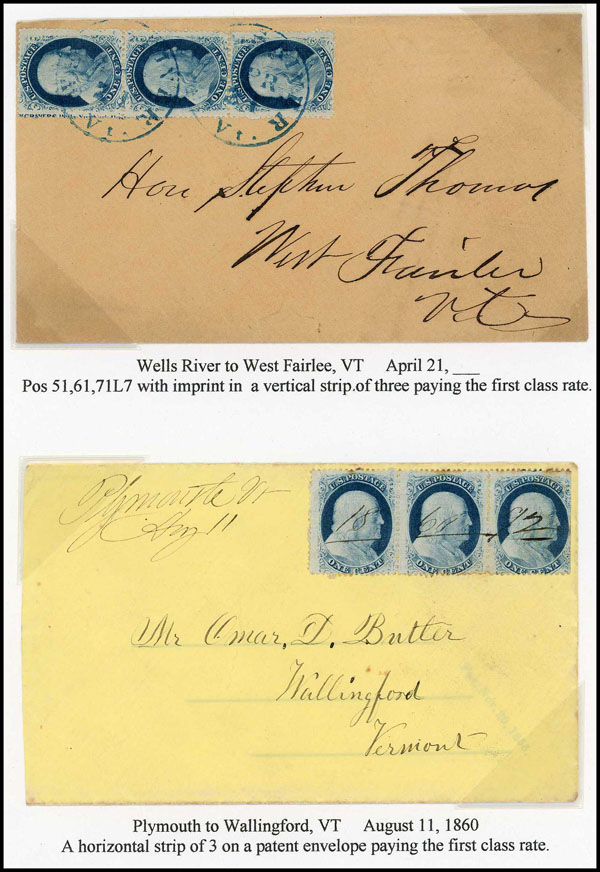 U.S. POSTAGE U.S. POSTAGE U.S. POSTAGE
ONE CENT ONE CENT ONE CENT
Hon Stephen Thomas
West Fairlee
Vt
Wells River to West Fairlee, VT April 21, ___
Pos 51,61,71L7 with imprint in a vertical strip.of three paying the first class rate.
Plymouth Vt
Aug 11
U.S. POSTAGE U.S. POSTAGE U.S. POSTAGE
18 60
ONE CENT ONE CENT ONE CENT
Mr Omar, D. Butler
Wallingford
Vermont
Plymouth to Wallingford, VT August 11, 1860
A horizontal strip of 3 on a patent envelope paying the first class rate.